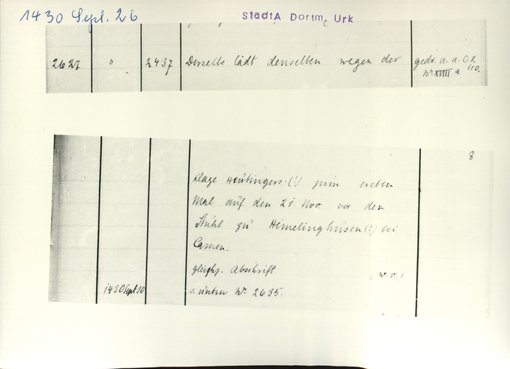 1430 Sept. 26
StadtA Dortm. Urk
2627 " 2437 Derselbe lädt denselben wegen der gedr. a. a. O. S.
110.
8
Klage Heutingers (!) zum ersten
Mal auf den 21 Nov vor den
Stuhl zu Himelinghusen (!) bei
Camen.
gleichz. Abschrift
1430 Sept 30 s. unten Nr. 2635.